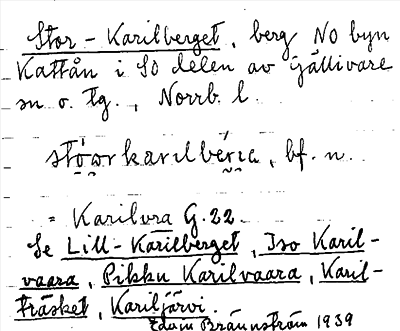 Stor-Karilberget, berg NO byn
Kattån i SO delen av Gällivare
sn o. tg., Norrb. l.
stóorkarilbérıa, bf. n.
= Karilvra G. 22
Se Lill-Karilberget, Iso Karil-
vaara, Pikku Karilvaara, Karil-
träsket, Kariljärvi.
Edvin Brännström 1939